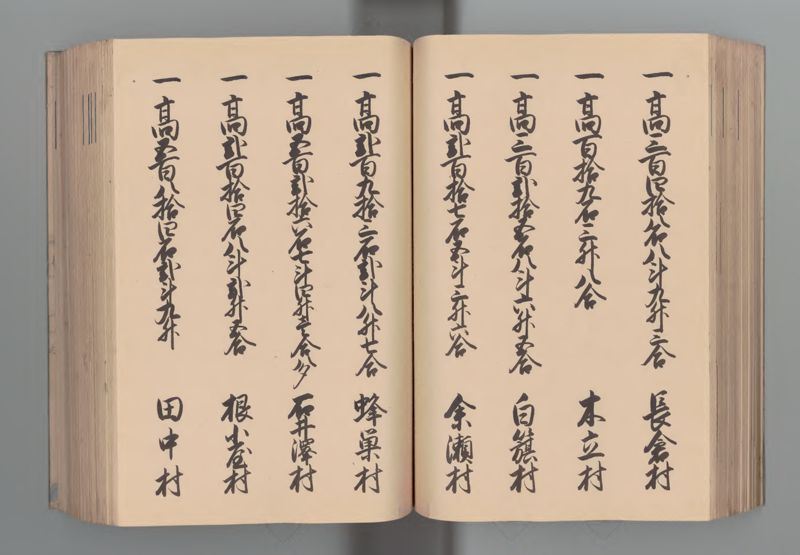 一 高三百四拾八石八斗九升三合 長倉村
一 高百拾九石三升八合 木立村
一 高三百弐拾五石八斗六升五合 白籏村
一 高弐百拾七石五斗三升六合 余瀬村
一 高弐百九拾三石弐斗八升七合 蜂巣村
一 高五百弐拾六石七斗四升壱合八夕 石井澤村
一 高弐百拾四石八斗弐升五合 根小屋村
一 高五百八拾四石弐斗九升 田中村